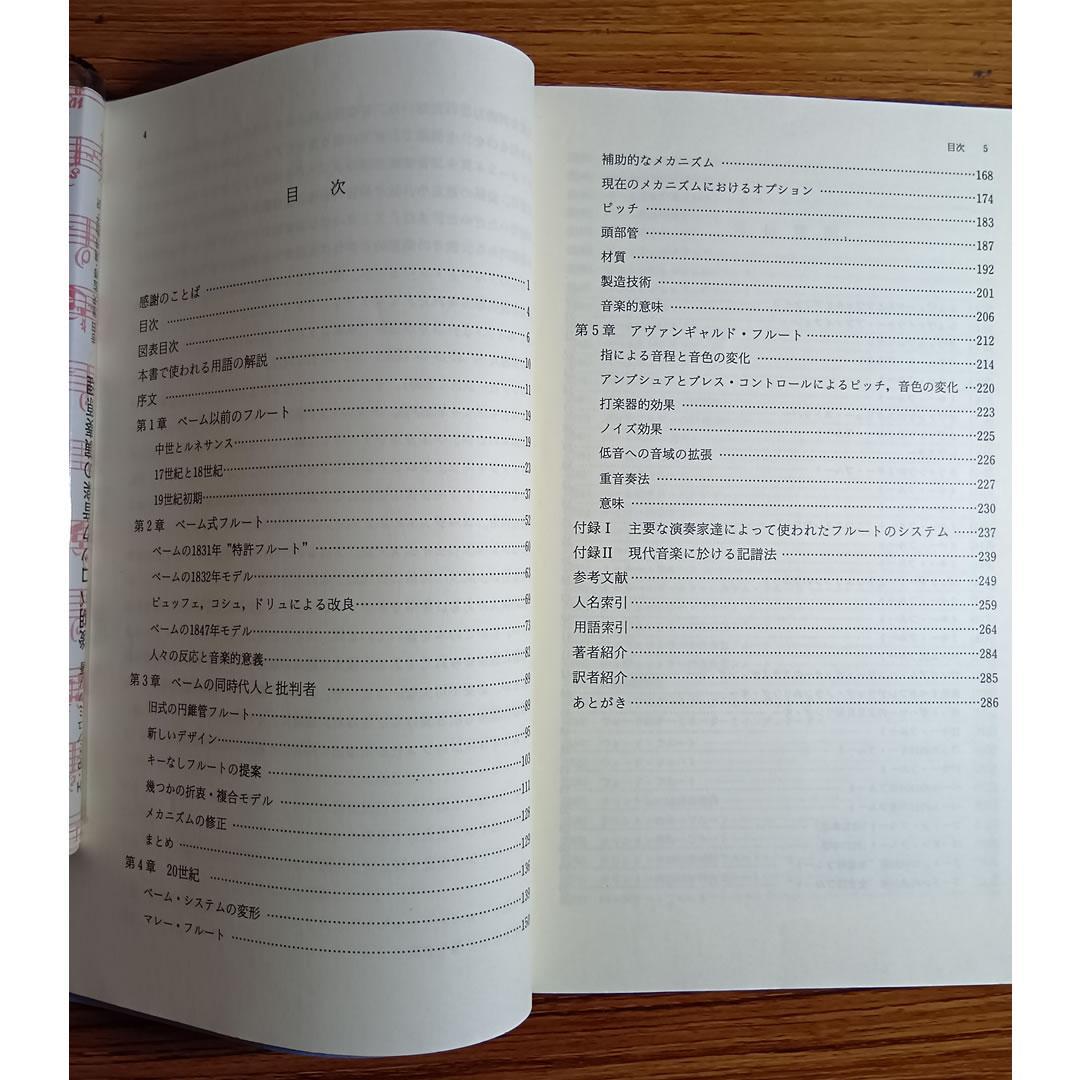 4
目 次
感謝のことば 1
目次 4
図表目次 6
本書で使われる用語の解説 10
序文 11
第1章 ベーム以前のフルート 19
中世とルネサンス 19
17世紀と18世紀 23
19世紀初期 37
第2章 ベーム式フルート 52
ベームの1831年 "特許フルート" 60
ベームの1832年モデル 63
ビュッフェ，コシュ，ドリュによる改良 69
ベームの1847年モデル 73
人々の反応と音楽的意義 82
第3章 ベームの同時代人と批判者 89
旧式の円錐管フルート 89
新しいデザイン 95
キーなしフルートの提案 103
幾つかの折衷・複合モデル 111
メカニズムの修正 128
まとめ 129
第4章 20世紀 136
ベーム・システムの変形 139
マレー・フルート 150
目次 5
補助的なメカニズム 168
現在のメカニズムにおけるオプション 174
ピッチ 183
頭部管 187
材質 192
製造技術 201
音楽的意味 206
第5章 アヴァンギャルド・フルート 212
指による音程と音色の変化 214
アンブシュアとブレス・コントロールによるピッチ，音色の変化 220
打楽器的効果 223
ノイズ効果 225
低音への音域の拡張 226
重音奏法 227
意味 230
付録Ⅰ 主要な演奏家達によって使われたフルートのシステム 237
付録Ⅱ 現代音楽に於ける記譜法 239
参考文献 249
人名索引 259
用語索引 264
著者紹介 284
訳者紹介 285
あとがき 286